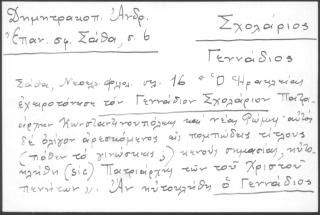 Δημητρακοπ. Ἀνδρ.
Ἐπαν. σφ. Σάθα, σ. 6
Σχολάριος
Γεννάδιος
Σάθα, Νεοελ. Φιλολ. σελ. 16 "Ὁ Ἡρακλείας
ἐχειροτόνησε τὸν Γεννάδιον Σχολάριον Πατρι-
άρχην Κωνσταντινουπόλεως καὶ νέας Ῥώμης· αὐτὸς
δὲ ὀλίγον ἀρεσκόμενος εἰς πομπώδεις τίτλους
(πόθεν τὸ γινώσκεις;) κενοὺς σημασίας, ηὐτο-
κλήθη (sic) Πατριάρχης τῶν τοῦ Χριστοῦ
πενήτων". Ἂν ηὐτοκλήθη ὁ Γεννάδιος